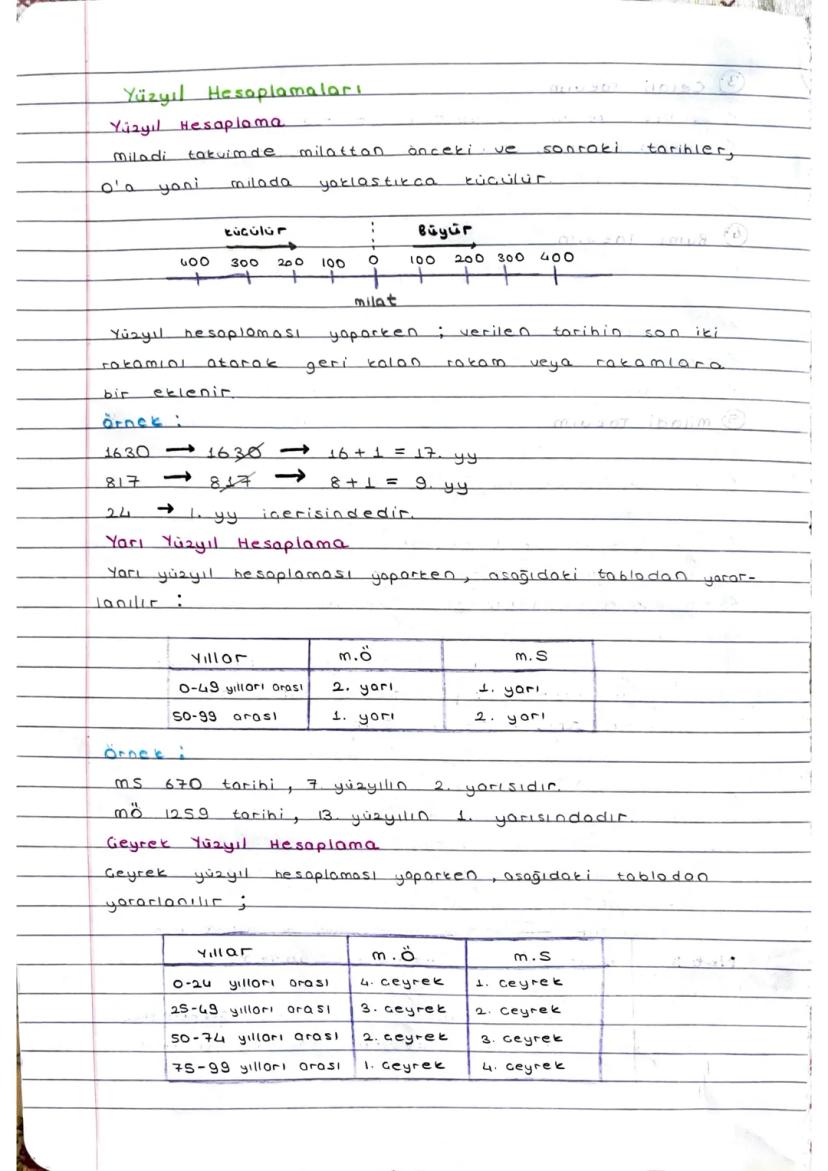 Yüzyıl Hesaplamaları
Yüzyıl Hesaplama
miladi takvimde milattan önceki ve sonraki tarihler,
0'a yani milada yaklastıkca kücülür.
kücülür Büyür
400 300 200 100 0 100 200 300 400
milat
Yüzyıl hesaplaması yaparken ; verilen tarihin son iki
rakamını atarak geri kalan rakam veya rakamlara
bir eklenir.
örnek :
1630 → 1630 → 16 + 1 = 17. yy
817 → 817 → 8 + 1 = 9. yy
24 → 1. yy icerisindedir.
Yarı Yüzyıl Hesaplama
Yarı yüzyıl hesaplaması yaparken, asağıdaki tablodan yarar-
lanılır :
Yıllar m.Ö m.S
0-49 yılları arası 2. yarı 1. yarı
50-99 arası 1. yarı 2. yarı
Örnek :
ms 670 tarihi, 7. yüzyılın 2. yarısıdır.
mö 1259 tarihi, 13. yüzyılın 1. yarısındadır.
Ceyrek Yüzyıl Hesaplama
Ceyrek yüzyıl hesaplaması yaparken, asağıdaki tablodan
yararlanılır ;
Yıllar m.Ö m.S
0-24 yılları arası 4. ceyrek 1. ceyrek
25-49 yılları arası 3. ceyrek 2. ceyrek
50-74 yılları arası 2. ceyrek 3. ceyrek
75-99 yılları arası 1. ceyrek 4. ceyrek